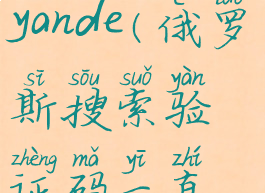 yande(俄罗
sī sōu suǒ yàn
斯搜索验
zhèng mǎ yī zhí
证码一直